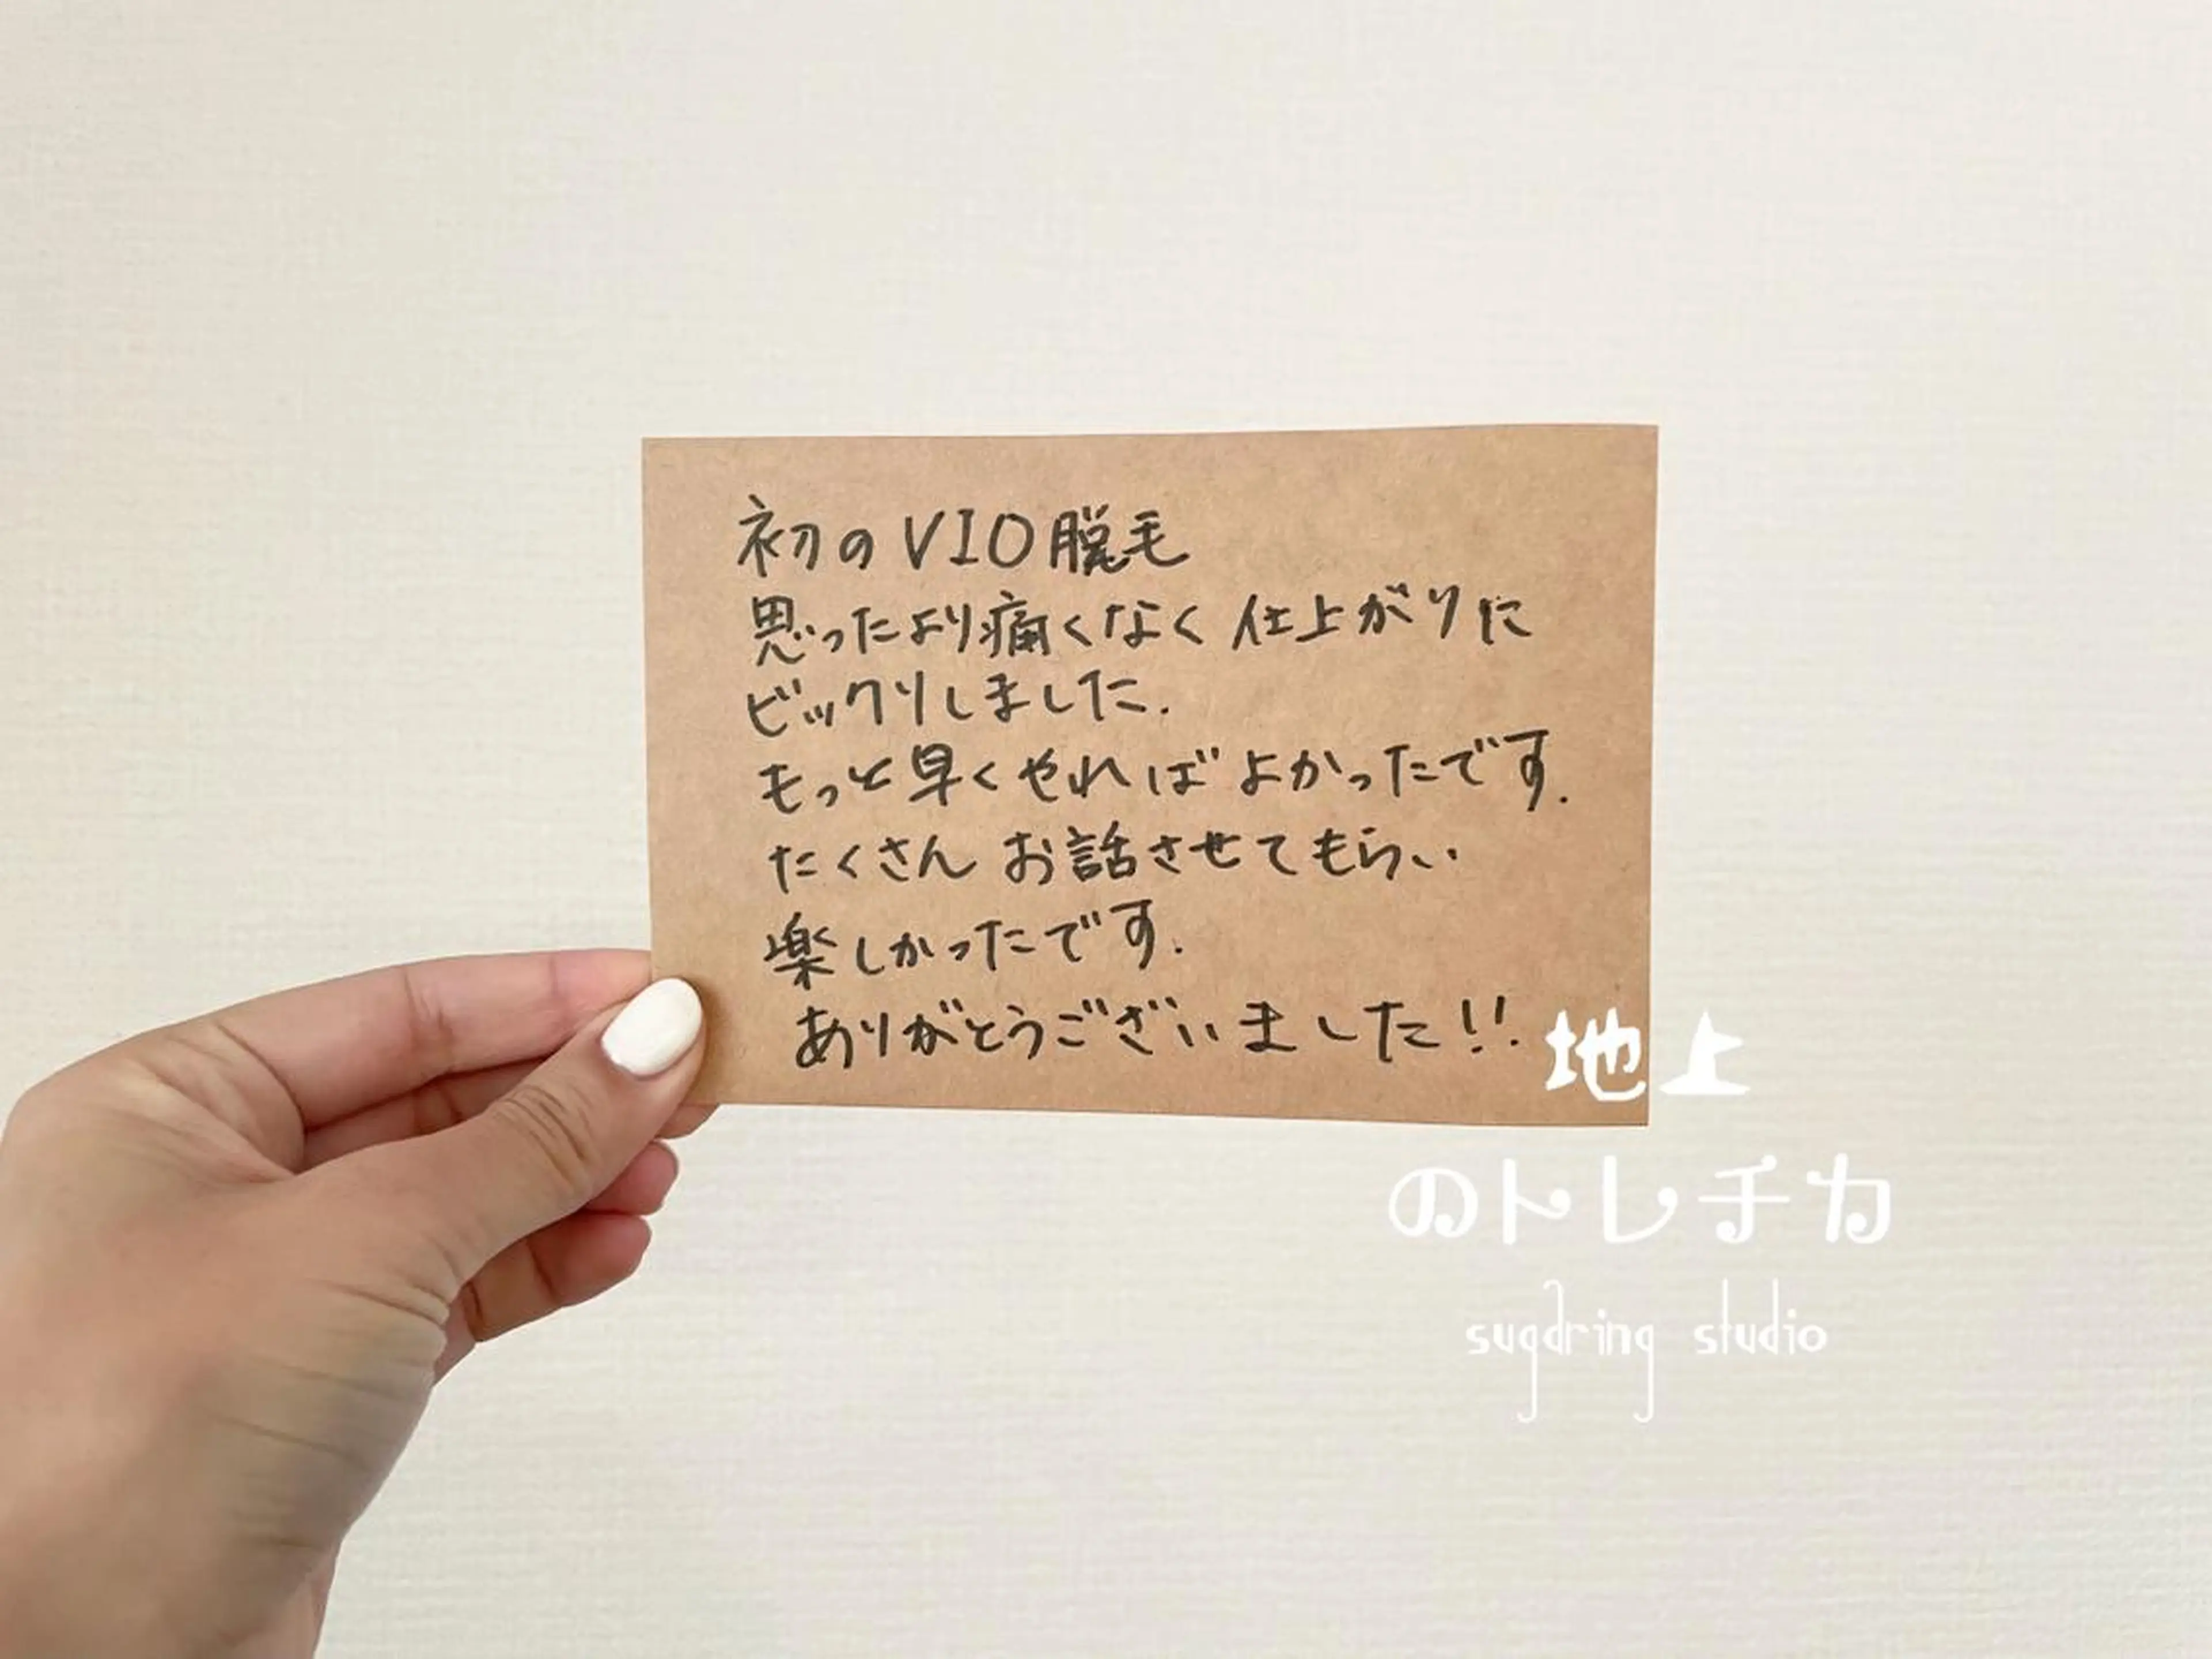 初のVIO脱毛
思ったより痛くなく 仕上がりに
ビックリしました.
もっと早くやれば よかったです.
たくさん お話させてもらい
楽しかったです.
ありがとうございました!!
地上
のトレチカ
sugaring studio